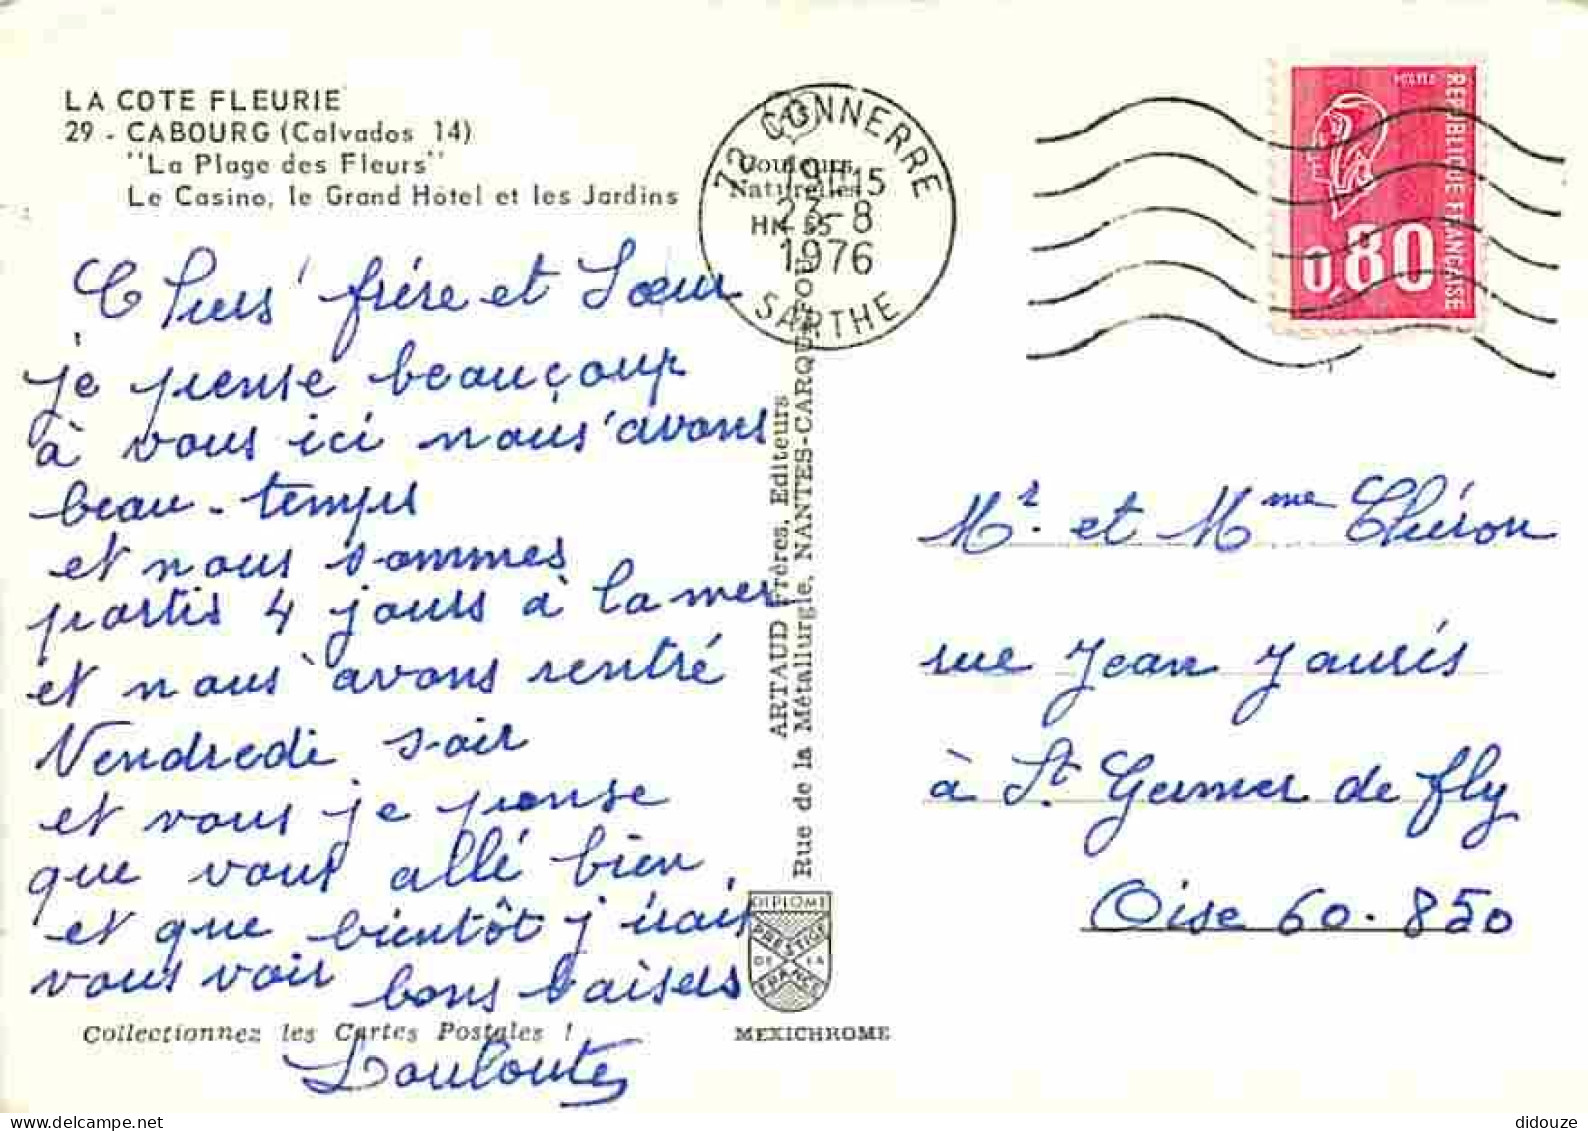 LA COTE FLEURIE
29 - CABOURG (Calvados 14)
"La Plage des Fleurs"
Le Casino, le Grand Hôtel et les Jardins
Couleurs
Naturelles
72 CONNERRE
19H15
23-8
1976
SARTHE
POSTES
REPUBLIQUE FRANCAISE
0,80
Chers frére et Sœur
je pense beaucoup
à vous ici nous avons
beau-temps
et nous sommes
partis 4 jours à la mer
et nous avons rentré
Vendredi soir
et vous je pense
que vous allé bien
et que bientôt j'irais
vous voir bons baisers
Louloute
Collectionnez les Cartes Postales !
ARTAUD Frères, Editeurs
Rue de la Métallurgie, NANTES-CARQUEFOU
DIPLOME
PRESTIGE
DE LA
FRANCE
MEXICHROME
Mr. et Mme Théron
rue Jean Jaurés
à St Germer de fly
Oise 60.850
didouze